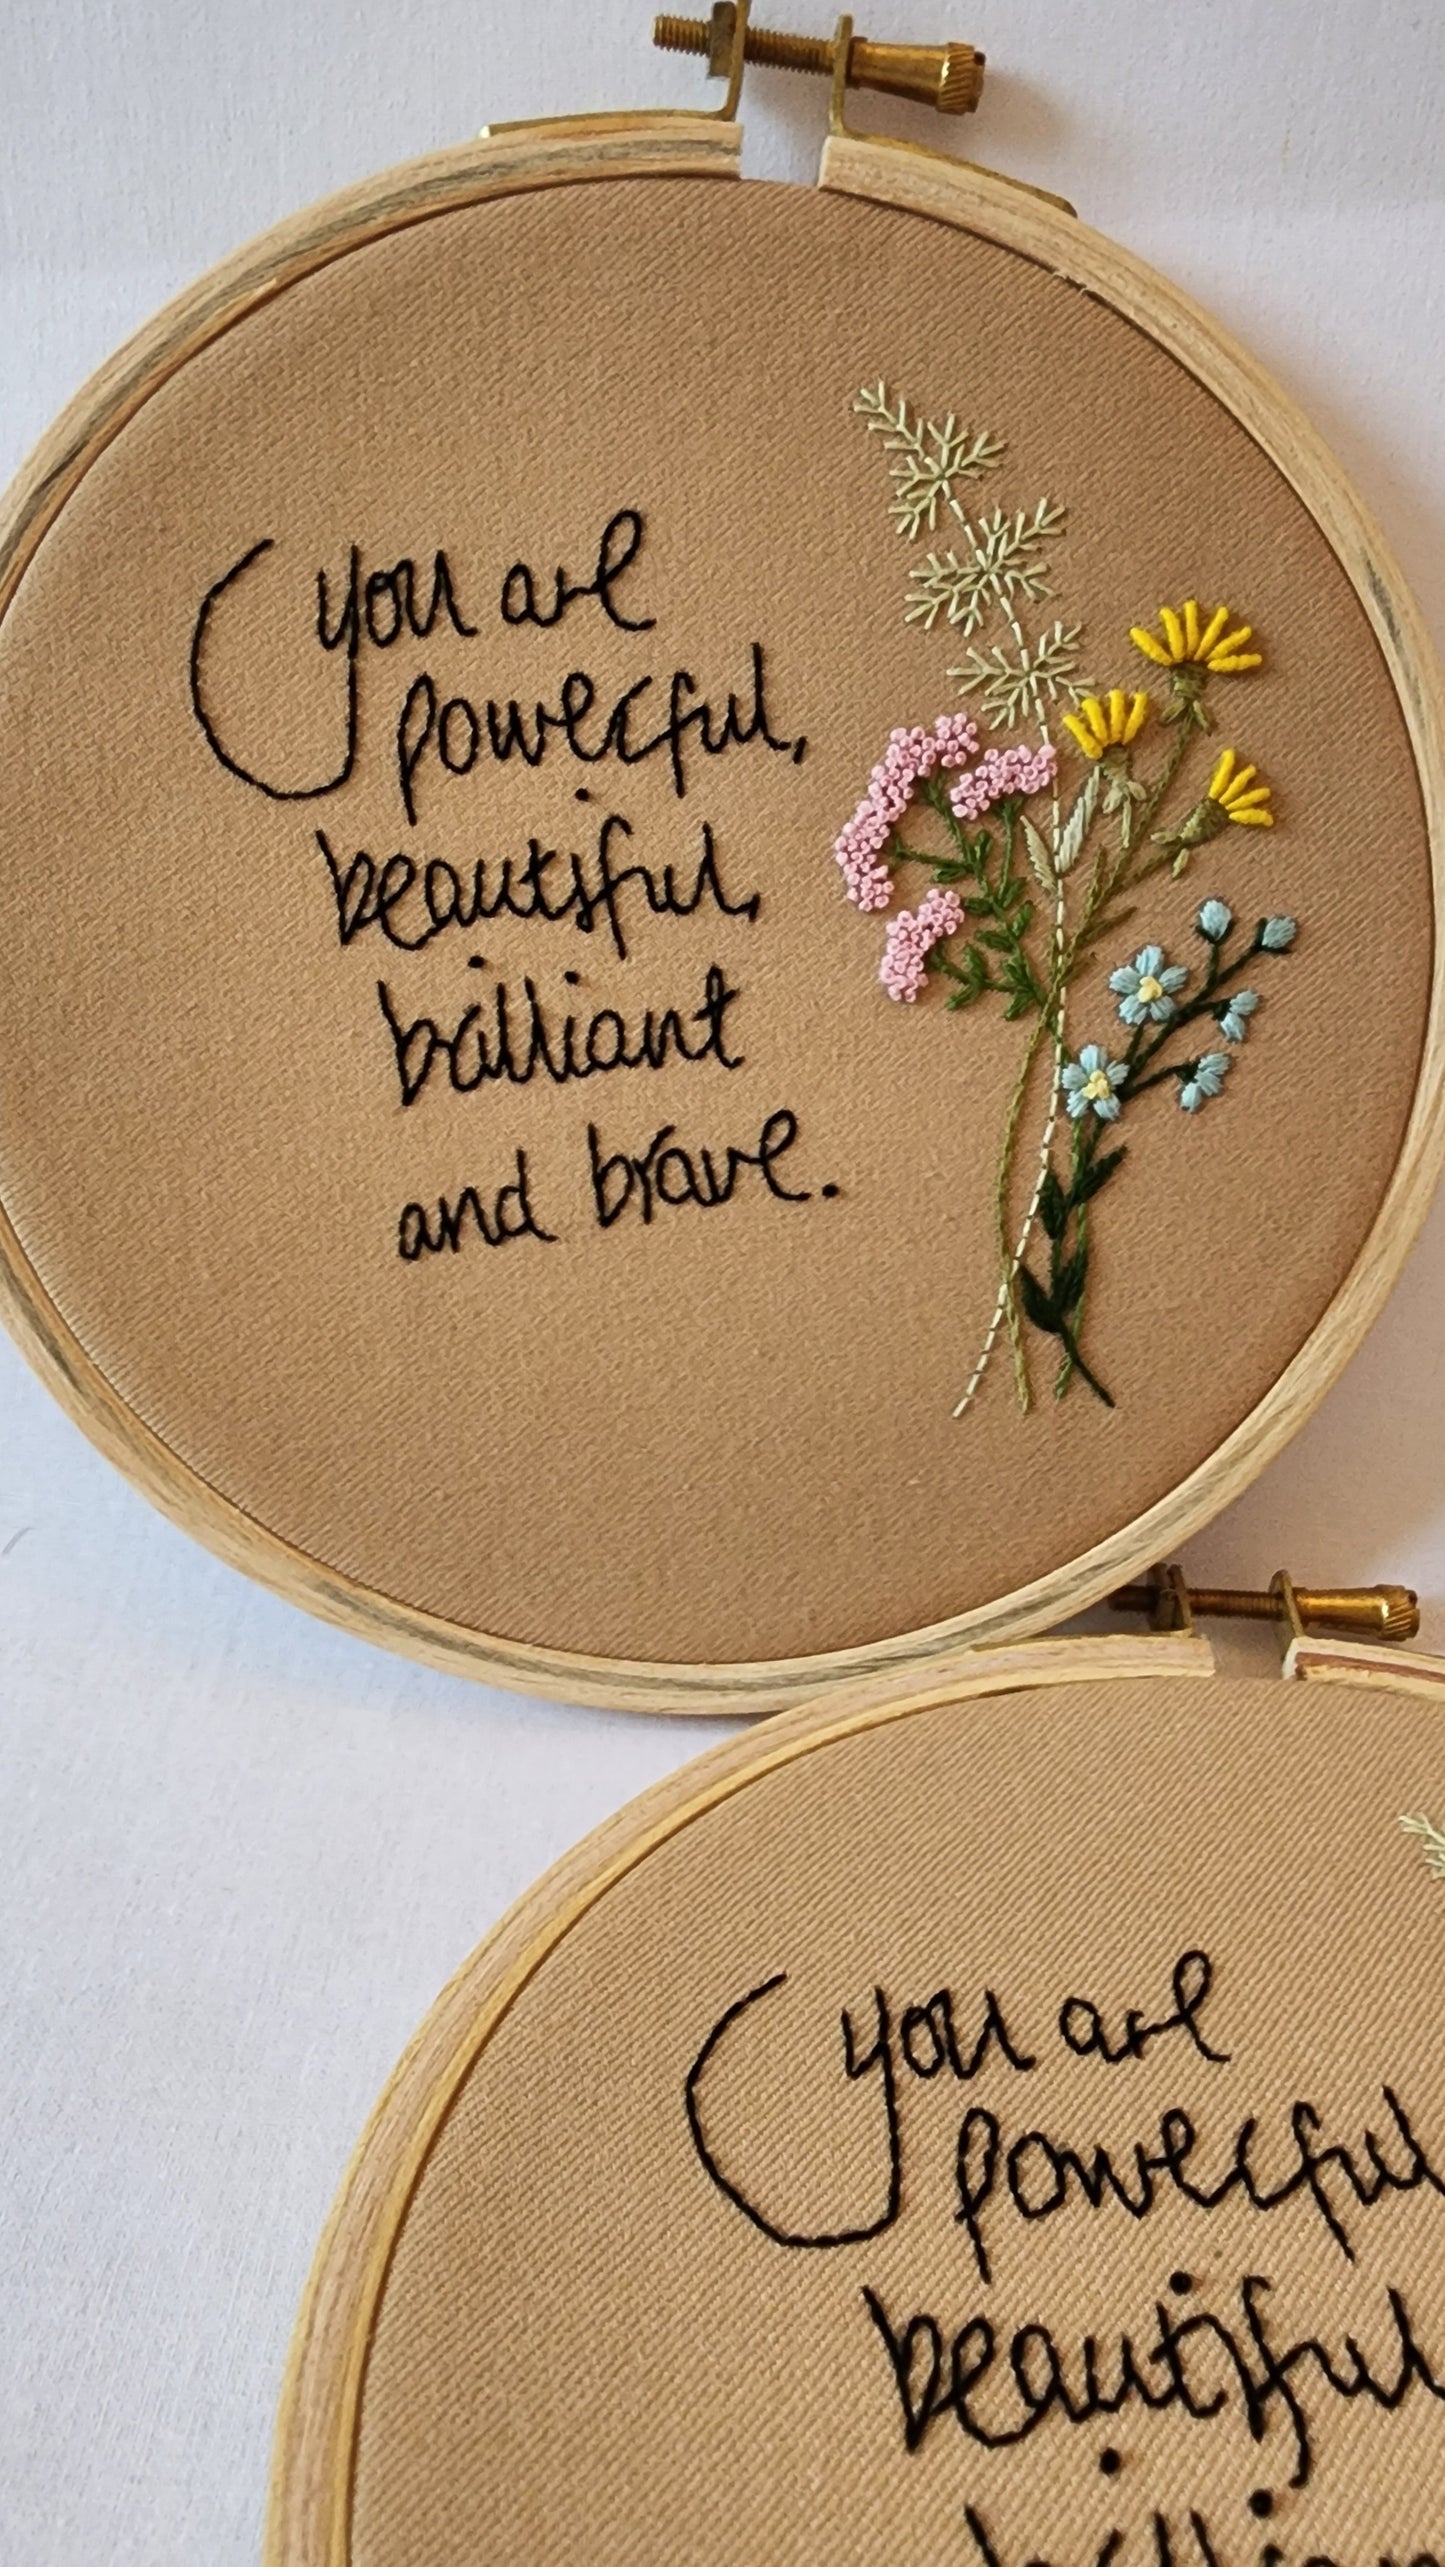 you are
powerful,
beautiful,
brilliant
and brave.
you are
powerful
beautiful